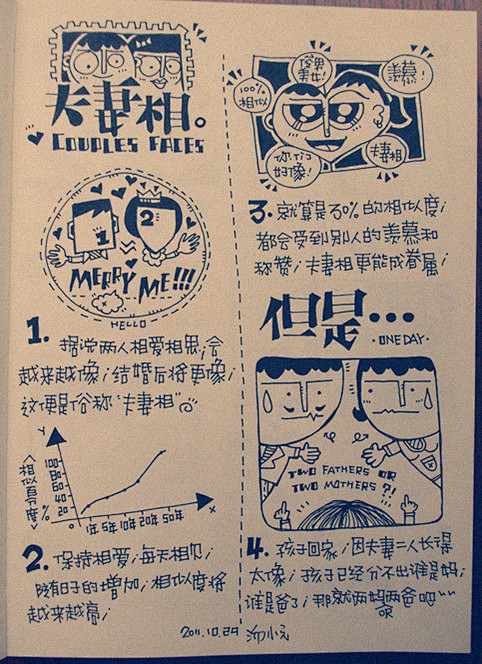 夫妻相。
COUPLES FACES
1
2
MERRY ME!!!
HELLO
1. 据说两人相爱相思,会
越来越像;结婚后将更像;
这便是俗称“夫妻相”
Y
<相似百分度>
%
100
80
60
40
20
1年 5年 10年 20年 50年
X
2. 保持相爱;每天相见;
随日子的增加;相似度将
越来越高;
100%
相似
俊男
美女!
羡慕!
你们
好像!
夫妻相
3. 就算是30%的相似度;
都会受到别人的羡慕和
称赞;夫妻相更能成眷属;
但是...
·ONEDAY·
TWO FATHERS OR
TWO MOTHERS?!
4. 孩子回家;因夫妻二人长得
太像;孩子已经分不出谁是妈;
谁是爸了;那就两妈两爸吧~~
OR
2011.10.29